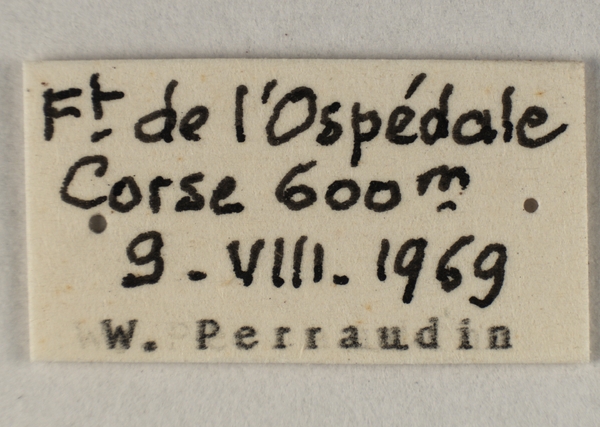 Ft de l'Ospédale
Corse 600m
9-VIII-1969
W. Perraudin